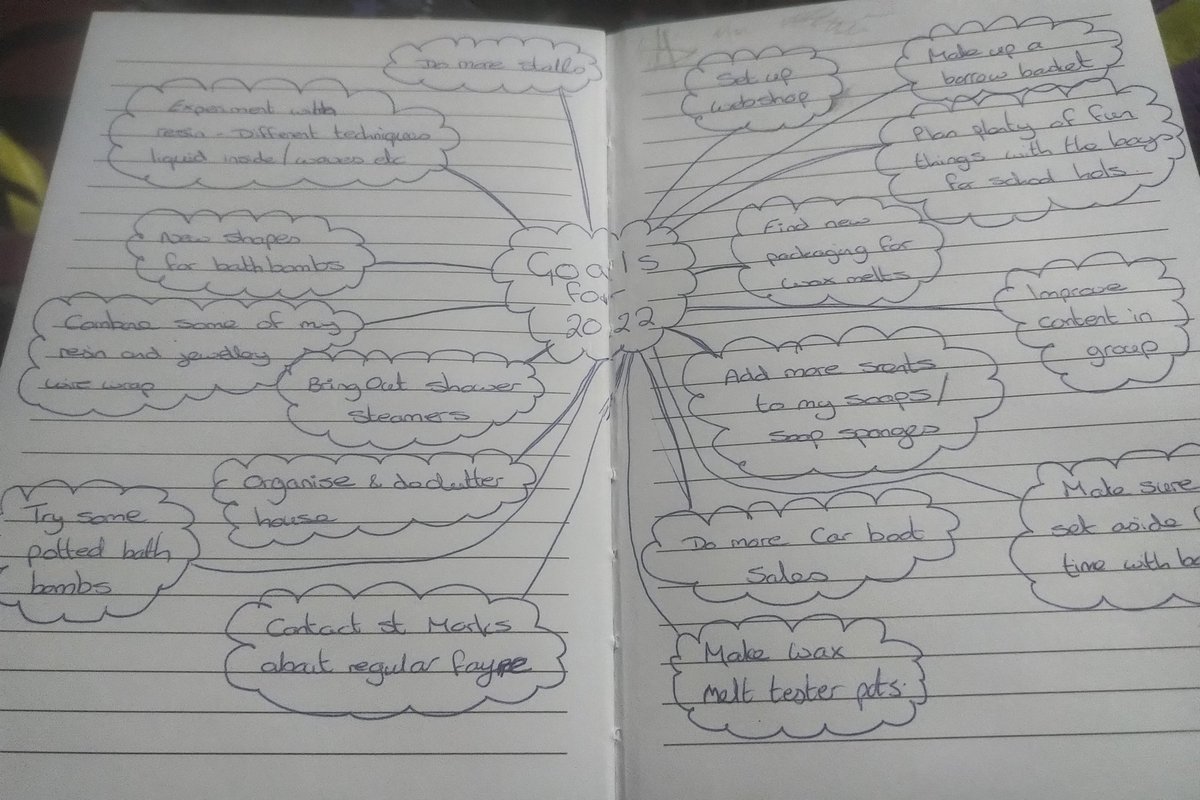 Do more stalls
Experiment with
resin - Different techniques
liquid inside/waxes etc
New shapes
for bath bombs
Combine some of my
resin and jewellery
wire wrap
Bring Out shower
steamers
Organise & declutter
house
Try some
potted bath
bombs
Contact st Marks
about regular fayre
Goals
for
2022
Set up
webshop
Make up a
borrow basket
Plan plenty of fun
things with the boys
for school hols.
Find new
packaging for
wax melts
Improve
content in
group
Add more scents
to my soaps/
soap sponges
Make sure
set aside
time with
Do more Car boot
Sales
Make wax
melt tester pots.